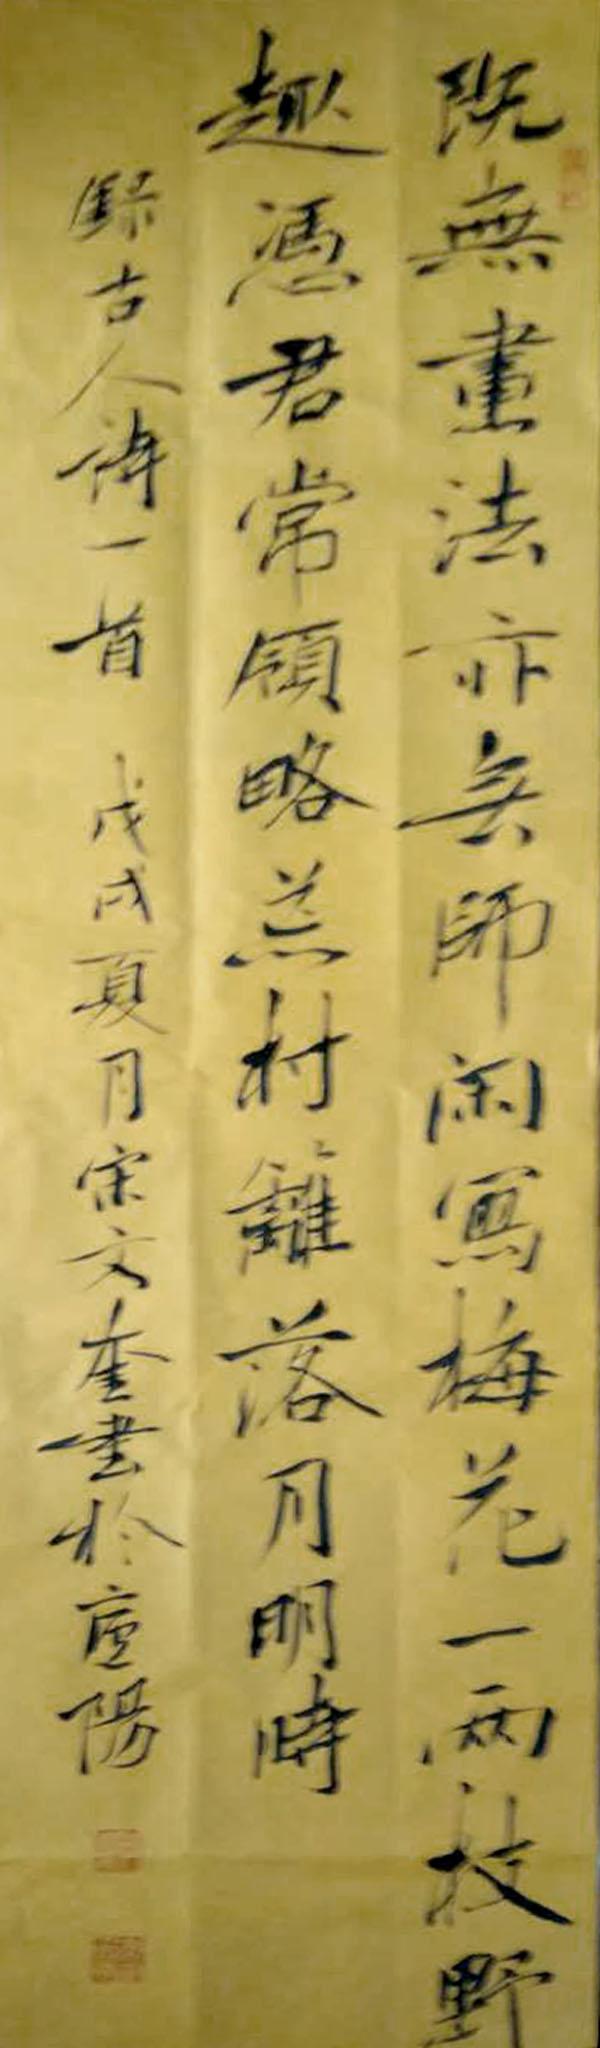 既無畫法亦無師闲寫梅花一兩枝野
趣憑君常領略荒村籬落月明時
録古人詩一首 戊戌夏月宋文奎書於廬陽